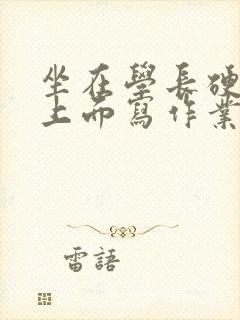 坐在學長硬
上面寫作業
雷語